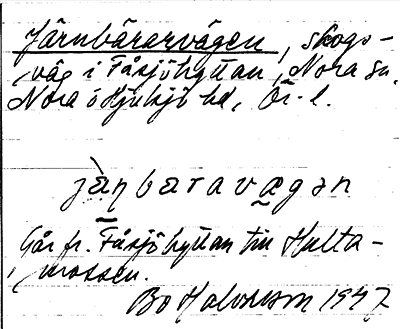 Järnbärarvägen, skogs-
väg i Fåsjöhyttan, Nora sn,
Nora o Hjulsjö hd, Ör. l.
jà̤ɳbaravägən
Går fr. Fåsjöhyttan till Hulta-
mossen.
Bo Halvarsson 1947